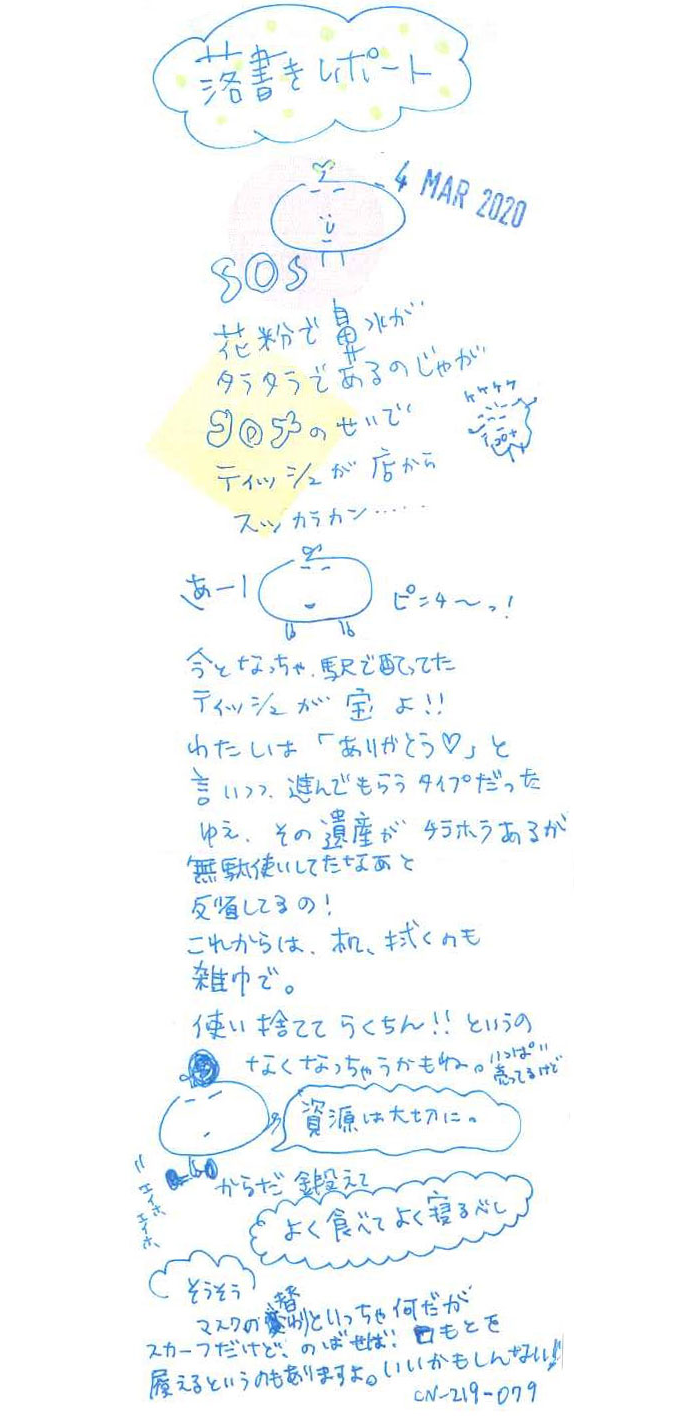 落書きレポート
4 MAR 2020
SOS
花粉で鼻水が
タラタラであるのじゃが
コロナのせいで
ケケケケ
コロナ
ティッシュが店から
スッカラカン……
あーー
ピンチ〜っ!
今となっちゃ、駅で配ってた
ティッシュが宝よ!!
わたしは「ありがとう♡」と
言いつつ、進んでもらうタイプだった
ゆえ、その遺産がチラホラあるが
無駄使いしてたなあと
反省してるの!
これからは、机、拭くのも
雑巾で。
使い捨ててらくちん!!というの
なくなっちゃうかもね。いっぱい
売ってるけど
資源は大切に。
からだ鍛えて
エイホ
エイホ
よく食べてよく寝るべし
そうそう
マスクの替わりといっちゃ何だが
スカーフだけど、のばせば!口もとを
覆えるというのもありますよ。いいかもしんない!!
CN-219-079